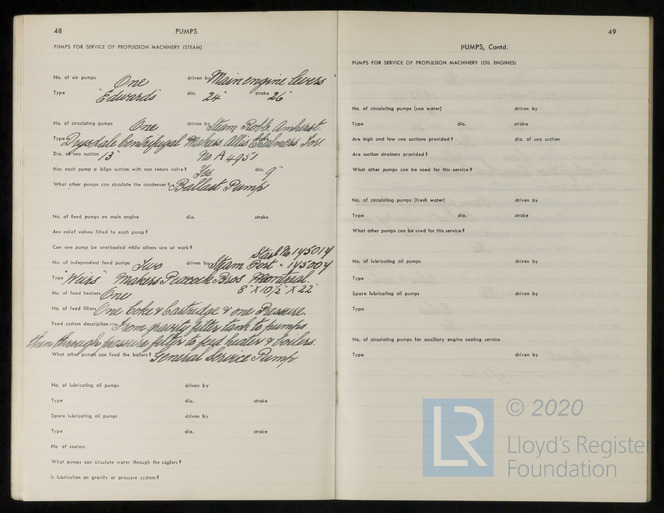 48 PUMPS
PUMPS FOR SERVICE OF PROPULSION MACHINERY (STEAM)
No. of air pumps One driven by Main engine levers
Type "Edwards" dia. 24" stroke 26"
No. of circulating pumps One driven by Steam Robb. Amherst.
Type Drysdale Centrifugal Makers Allis Chalmers Inc.
Dia. of sea suction 13" No A4951
Has each pump a bilge suction with non return valve? Yes dia. 9"
What other pumps can circulate the condenser? Ballast Pump
No. of feed pumps on main engine dia. stroke
Are relief valves fitted to each pump?
Can one pump be overhauled while others are at work?
Starb No 145014
No. of independent feed pumps Two driven by Steam Port - 145004
Type "Weirs" Makers Peacock Bros Montreal
No. of feed heaters One 8" X 10½" X 22"
No. of feed filters One Coke & Cartridge & one Pressure
Feed system description From gravity filter tank to pumps
then through pressure filter to feed heater & boilers.
What other pumps can feed the boilers? General Service Pump
No. of lubricating oil pumps driven by
Type dia. stroke
Spare lubricating oil pumps driven by
Type dia. stroke
No. of coolers
What pumps can circulate water through the coolers?
Is lubrication on gravity or pressure system?
49
PUMPS, Contd.
PUMPS FOR SERVICE OF PROPULSION MACHINERY (OIL ENGINES)
No. of circulating pumps (sea water) driven by
Type dia. stroke
Are high and low sea suctions provided? dia. of sea suction
Are suction strainers provided?
What other pumps can be used for this service?
No. of circulating pumps (fresh water) driven by
Type dia. stroke
What other pumps can be used for this service?
No. of lubricating oil pumps driven by
Type
Spare lubricating oil pumps driven by
Type
No. of circulating pumps for auxiliary engine cooling service
Type driven by
LR © 2020
Lloyd's Register
Foundation